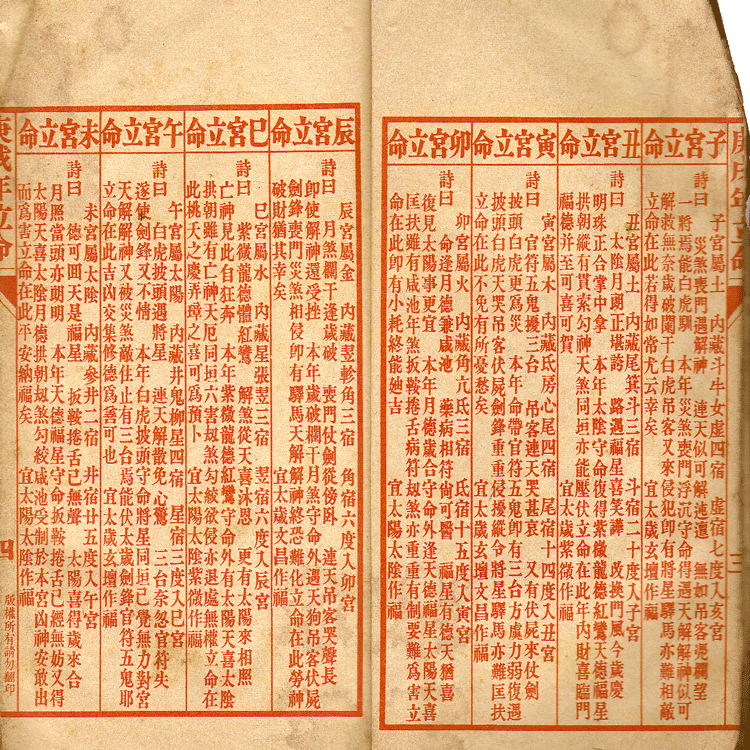 庚戌年立命
三
子宮立命
子宮屬土 內藏斗牛女虛四宿 虛宿七度入亥宮
詩曰 災煞喪門遇解神 連天似可解迍邅 無如吊客憑欄望
一將焉能白虎馴 本年災煞喪門浮沉守命得遇天解解神似可
解救無奈歲破闌干白虎吊客又來侵犯卽有將星驛馬亦難相敵
立命在此若得如常尤云幸矣 宜太歲玄壇作福
丑宮立命
丑宮屬土 內藏尾箕斗三宿 斗宿二十度入子宮
詩曰 太陰月朗正堪誇 路遇福星喜笑譁 改換門風今歲慶
明珠正合掌中拿 本年太陰守命復得紫微龍德紅鸞天德福星
拱朝縱有貫索勾神天煞同垣亦能壓伏立命在此年內財喜臨門
福德并至可喜可賀 宜太歲紫微作福
寅宮立命
寅宮屬木 內藏氐房心尾四宿 尾宿十四度入丑宮
詩曰 官符五鬼擾三台 吊客連天哭甚哀 又有伏屍來仗劍
披頭白虎更爲災 本年命帶官符五鬼卽有三台方虞力弱復遇
披頭白虎天哭吊客伏屍劍鋒重重侵擾縱令將星驛馬亦難匡扶
立命在此不免有所憂愁矣 宜太歲玄壇文昌作福
卯宮立命
卯宮屬火 內藏角亢氐三宿 氐宿十五度入寅宮
詩曰 命逢月德兼咸池 藥病相符尙可醫 福星有德天猶喜
復見太陽事更宜 本年月德歲合守命外逢天德福星太陽天喜
匡扶雖有咸池年煞扳鞍捲舌病符刼煞亦重重有制要難爲害立
命在此卽有小耗終能廸吉 宜太陽太陰作福
辰宮立命
辰宮屬金 內藏翌軫角三宿 角宿六度入卯宮
詩曰 月煞欄干逢歲破 喪門仗劍從傍卧 連天吊客哭聲長
卽使解神還受挫 本年歲破欄干月煞守命外遇天狗吊客伏屍
劍鋒喪門災煞相侵卽有驛馬天解解神終恐難化立命在此勞神
破財猶其幸矣 宜太歲文昌作福
巳宮立命
巳宮屬水 內藏星張翌三宿 翌宿六度入辰宮
詩曰 紫微龍德體紅鸞 解煞從天喜沐恩 更有太陽來相照
亡神見此自狂奔 本年紫微龍德紅鸞守命外有太陽天喜太陰
拱朝雖有亡神天厄同垣六害刼煞勾絞欲侵亦退處無權立命在
此桃夭之慶弄璋之喜可爲預卜 宜太陽太陰紫微作福
午宮立命
午宮屬太陽 內藏井鬼柳星四宿 星宿三度入巳宮
詩曰 白虎披頭遇將星 連天解散免心驚 三台奈忽官符失
遂使劍鋒又不情 本年白虎披頭守命將星同垣已覺無力對宮
天解解神又被災煞敵住止有三台焉能伏太歲劍鋒官符五鬼耶
立命在此吉凶交集修德爲善可也 宜太歲玄壇作福
未宮立命
未宮屬太陰 內藏參井二宿 井宿廿五度入午宮
詩曰 德可囬天是福星 扳鞍捲舌已無聲 太陽喜得歲來合
月照當頭亦朗明 本年天德福星守命扳鞍捲舌已經無妨又得
太陽天喜太陰月德拱朝刼煞勾絞咸池受制於本宮凶神安敢出
而爲害立命在此平安納福矣 宜太陽太陰作福
庚戌年立命
四
版權所有請勿翻印